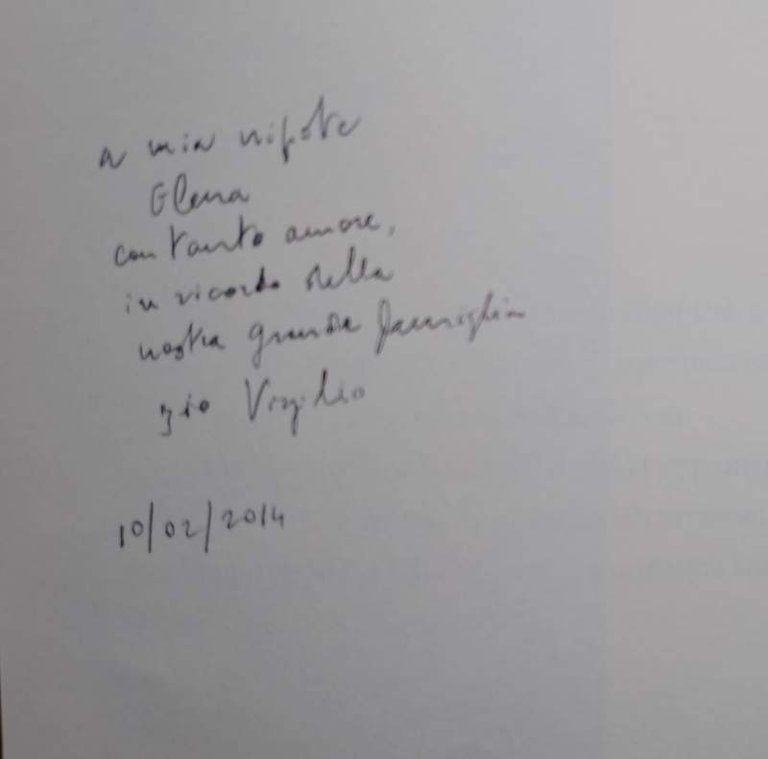 a mia nipote
Elena
con tanto amore,
in ricordo della
nostra grande famiglia
zio Virgilio
10/02/2014